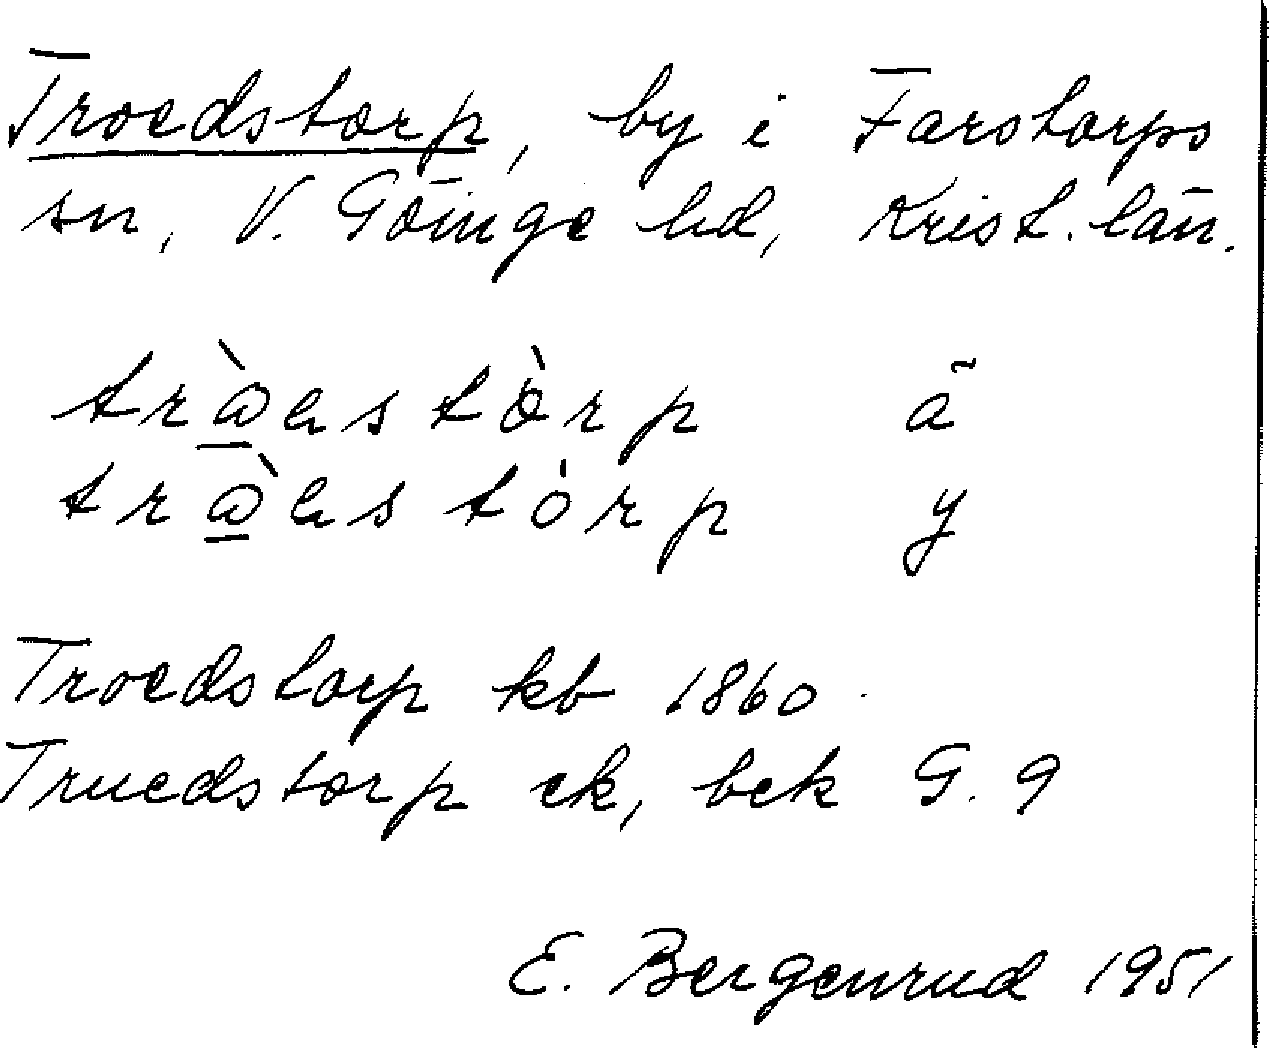 Troedstorp, by i Farstorps
sn, V. Göinge hd, Krist. län.
ä
y
Troedstorp kb 1860
Truedstorp ek, bek G. 9
E. Bergenrud 1951